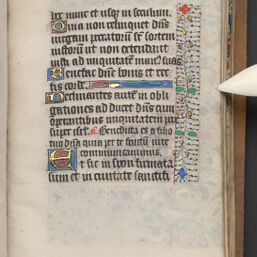 hoc nunc et usqz in seculum.
Quia non relinquet dns
uirgam peccatorum sr sortem
iustorum ut non extendant
iusti ad iniquitatem man' suas
Benefac dne bonis et rec
tis corde.
Declinantes aute in obli
gationes ad ducet dns cum
operantibus iniquitatem pax
super isrl. a. Benedicta es a filio
tuo dna quia per te fructu uite
communicauimus.
Et sic in syon firmata
sum et in ciuitate sanctifi